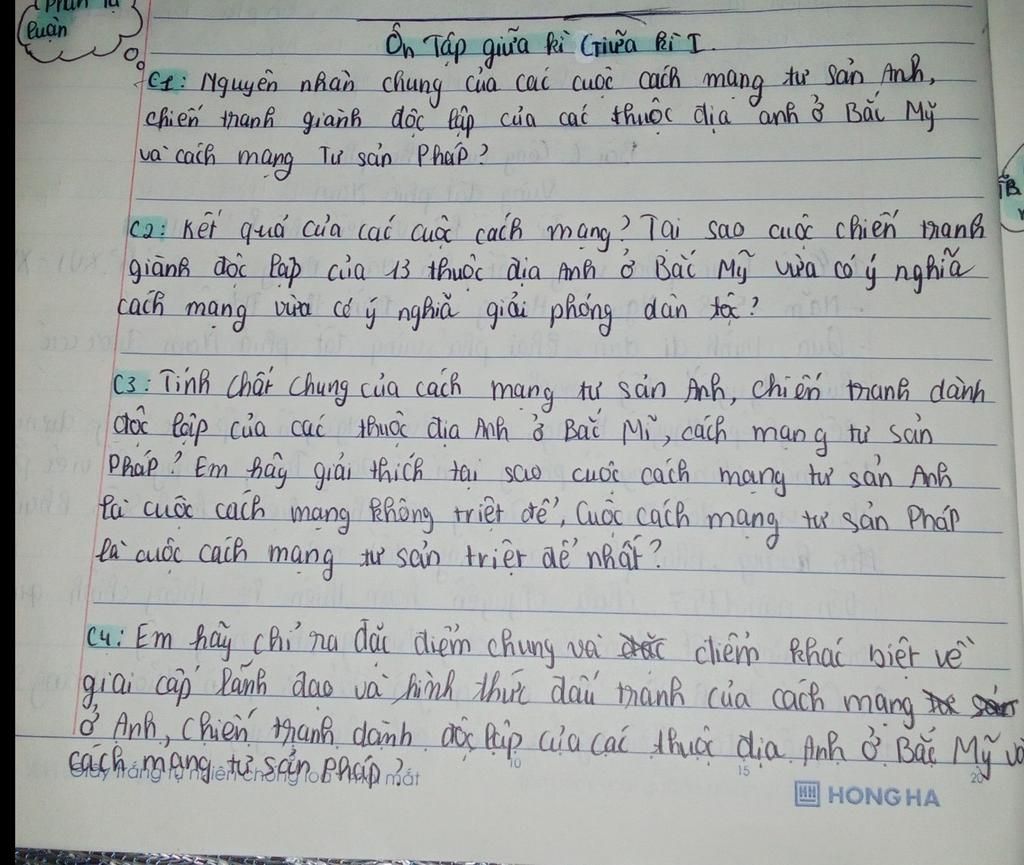 (Phần tự
luận
Ôn Tập giữa kì Giữa kì I.
C1: Nguyên nhân chung của các cuộc cách mạng tư sản Anh,
chiến tranh giành độc lập của các thuộc địa anh ở Bắc Mỹ
và cách mạng Tư sản Pháp?
C2: Kết quả của các cuộc cách mạng? Tại sao cuộc chiến tranh
giành độc lập của 13 thuộc địa Anh ở Bắc Mỹ vừa có ý nghĩa
cách mạng vừa có ý nghĩa giải phóng dân tộc?
C3: Tính chất chung của cách mạng tư sản Anh, chiến tranh dành
độc lập của các thuộc địa Anh ở Bắc Mĩ, cách mạng tư sản
Pháp? Em hãy giải thích tại sao cuộc cách mạng tư sản Anh
là cuộc cách mạng không triệt để, Cuộc cách mạng tư sản Pháp
là cuộc cách mạng tư sản triệt để nhất?
C4: Em hãy chỉ ra đặc điểm chung và điểm khác biệt về
giai cấp lãnh đạo và hình thức đấu tranh của cách mạng
ở Anh, chiến tranh dành độc lập của các thuộc địa Anh ở Bắc Mỹ và
cách mạng tư sản Pháp?
10
15
20
HH HONG HA